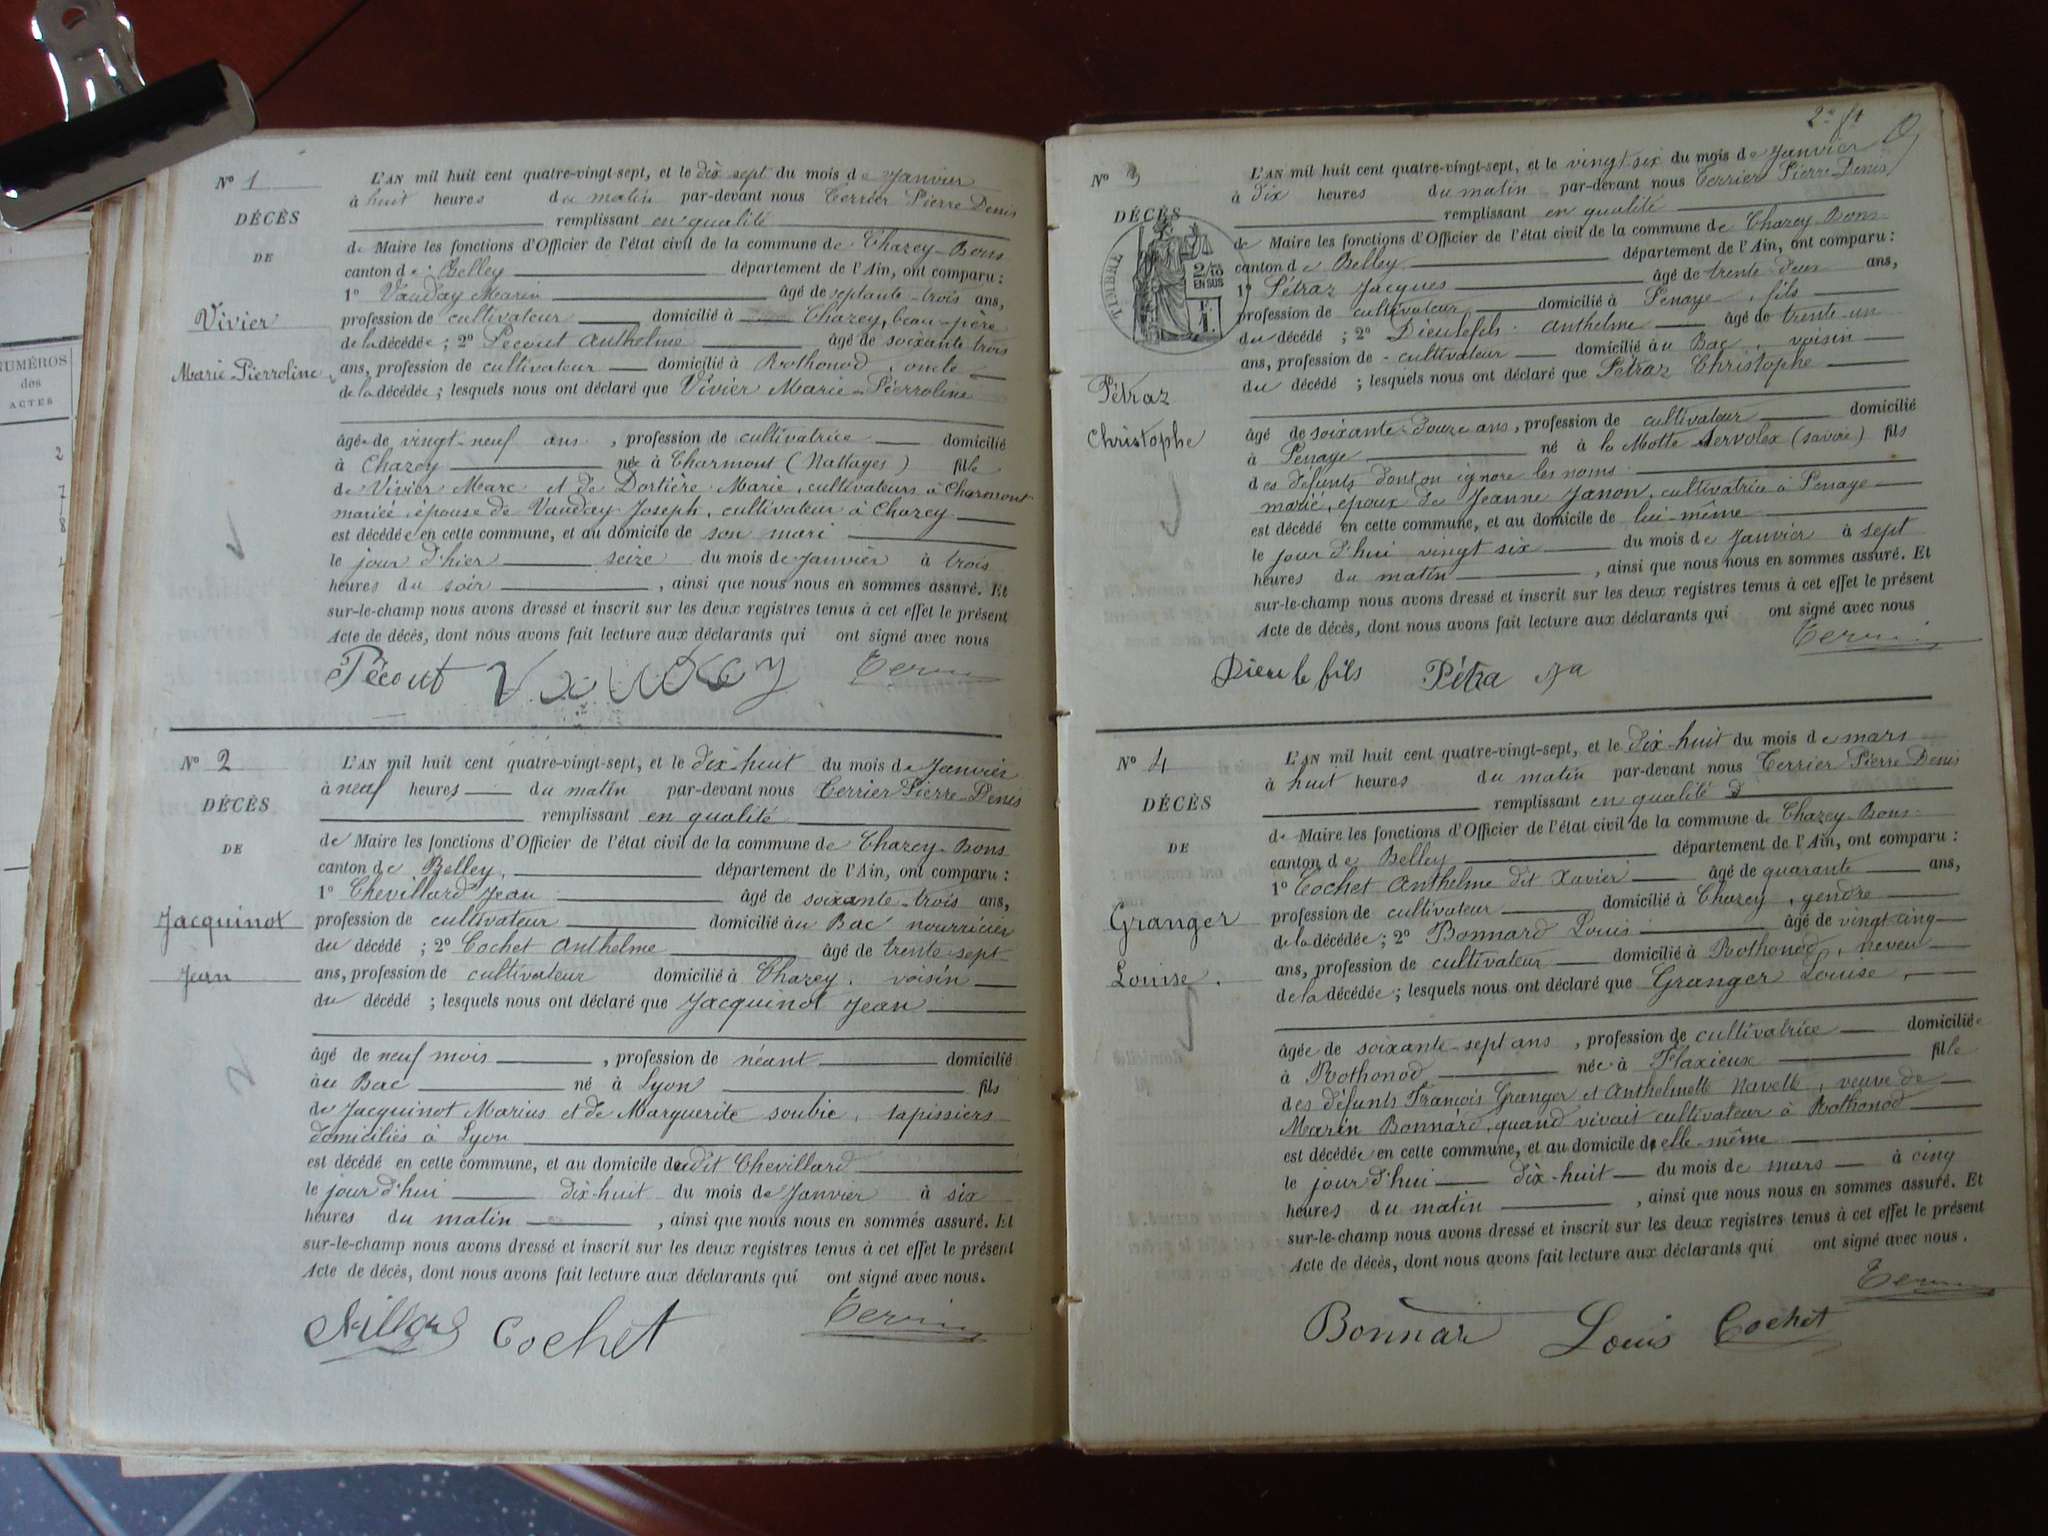 NUMÉROS
des
ACTES
2
7
8
N° 1
DÉCÈS
DE
Vivier
Marie-Pierroline
L'AN mil huit cent quatre-vingt-sept, et le dix sept du mois de Janvier
à huit heures du matin par-devant nous Terrier Pierre Denis
remplissant en qualité
de Maire les fonctions d'Officier de l'état civil de la commune de Chazey-Bons
canton de Belley département de l'Ain, ont comparu :
1° Vauday Marin âgé de septante-trois ans,
profession de cultivateur domicilié à Chazey, beau-père
de la décédée ; 2° Pécout Anthelme âgé de soixante trois
ans, profession de cultivateur domicilié à Rothonod, oncle
de la décédée ; lesquels nous ont déclaré que Vivier Marie-Pierroline
âgée de vingt-neuf ans, profession de cultivatrice domicilié
à Chazey née à Charmont (Nattages) fille
de Vivier Marc et de Dortière Marie, cultivateurs à Charmont
mariée, épouse de Vauday Joseph, cultivateur à Chazey
est décédée en cette commune, et au domicile de son mari
le jour d'hier seize du mois de Janvier à trois
heures du soir, ainsi que nous nous en sommes assuré. Et
sur-le-champ nous avons dressé et inscrit sur les deux registres tenus à cet effet le présent
Acte de décès, dont nous avons fait lecture aux déclarants qui ont signé avec nous
Pécout Vauday Terrier
N° 2
DÉCÈS
DE
Jacquinot
Jean
L'AN mil huit cent quatre-vingt-sept, et le dix-huit du mois de Janvier
à neuf heures du matin par-devant nous Terrier Pierre-Denis
remplissant en qualité
de Maire les fonctions d'Officier de l'état civil de la commune de Chazey-Bons
canton de Belley, département de l'Ain, ont comparu :
1° Chevillard Jean âgé de soixante-trois ans,
profession de cultivateur domicilié au Bac nourricier
du décédé ; 2° Cochet Anthelme âgé de trente-sept
ans, profession de cultivateur domicilié à Chazey, voisin
du décédé ; lesquels nous ont déclaré que Jacquinot Jean
âgé de neuf mois, profession de néant domicilié
au Bac né à Lyon fils
de Jacquinot Marius et de Marguerite soubie, tapissiers
domiciliés à Lyon
est décédé en cette commune, et au domicile dudit Chevillard
le jour d'hui dix-huit du mois de Janvier à six
heures du matin, ainsi que nous nous en sommes assuré. Et
sur-le-champ nous avons dressé et inscrit sur les deux registres tenus à cet effet le présent
Acte de décès, dont nous avons fait lecture aux déclarants qui ont signé avec nous.
Cochet Terrier
2e ft
N° 3
DÉCÈS
TIMBRE
2/10
EN SUS
F
1
Pétraz
Christophe
L'AN mil huit cent quatre-vingt-sept, et le vingt-six du mois de Janvier
à dix heures du matin par-devant nous Terrier Pierre-Denis
remplissant en qualité
de Maire les fonctions d'Officier de l'état civil de la commune de Chazey-Bons
canton de Belley département de l'Ain, ont comparu :
1° Pétraz Jacques âgé de trente-deux ans,
profession de cultivateur domicilié à Penaye, fils
du décédé ; 2° Dieulefils Anthelme âgé de trente-un
ans, profession de cultivateur domicilié au Bac, voisin
du décédé ; lesquels nous ont déclaré que Pétraz Christophe
âgé de soixante-douze ans, profession de cultivateur domicilié
à Penaye né à la Motte Servolex (savoie) fils
des défunts dont on ignore les noms
marié, époux de Jeanne Janon, cultivatrice à Penaye
est décédé en cette commune, et au domicile de lui-même
le jour d'hui vingt six du mois de Janvier à sept
heures du matin, ainsi que nous nous en sommes assuré. Et
sur-le-champ nous avons dressé et inscrit sur les deux registres tenus à cet effet le présent
Acte de décès, dont nous avons fait lecture aux déclarants qui ont signé avec nous
Terrier
Dieu le fils Pétra Ja
N° 4
DÉCÈS
DE
Granger
Louise.
L'AN mil huit cent quatre-vingt-sept, et le dix-huit du mois de mars
à huit heures du matin par-devant nous Terrier Pierre Denis
remplissant en qualité
de Maire les fonctions d'Officier de l'état civil de la commune de Chazey-Bons
canton de Belley département de l'Ain, ont comparu :
1° Cochet Anthelme dit Xavier âgé de quarante ans,
profession de cultivateur domicilié à Chazey, gendre
de la décédée ; 2° Bonnard Louis âgé de vingt cinq
ans, profession de cultivateur domicilié à Rothonod, neveu
de la décédée ; lesquels nous ont déclaré que Granger Louise,
âgée de soixante-sept ans, profession de cultivatrice domiciliée
à Rothonod née à Flaxieux fille
des défunts François Granger et Anthelmette Navette, veuve de
Marin Bonnard, quand vivait cultivateur à Rothonod
est décédée en cette commune, et au domicile d'elle-même
le jour d'hui dix-huit du mois de mars à cinq
heures du matin, ainsi que nous nous en sommes assuré. Et
sur-le-champ nous avons dressé et inscrit sur les deux registres tenus à cet effet le présent
Acte de décès, dont nous avons fait lecture aux déclarants qui ont signé avec nous.
Terrier
Bonnar Louis Cochet